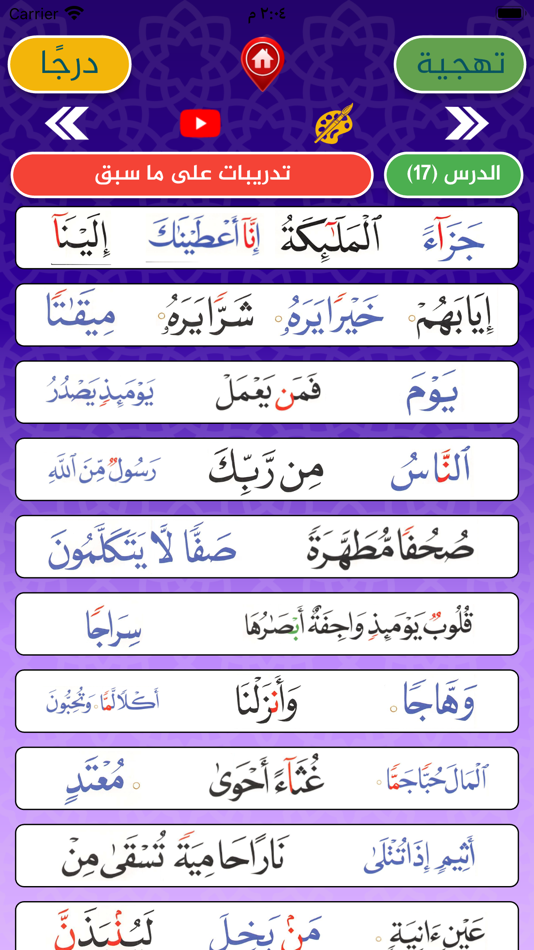 Carrier ٢:٠٤ م
تهجية درجًا
الدرس (17) تدريبات على ما سبق
جَزَآءً ٱلْمَلَـٰٓئِكَةُ إِنَّآ أَعْطَيْنَـٰكَ إِلَيْنَآ
إِيَابَهُمْ خَيْرًا يَرَهُۥ شَرًّا يَرَهُۥ مِيقَـٰتًا
يَوْمَ فَمَن يَعْمَلْ يَوْمَئِذٍ يَصْدُرُ
ٱلنَّاسُ مِن رَّبِّكَ رَسُولٌ مِّنَ ٱللَّهِ
صُحُفًا مُّطَهَّرَةً صَفًّا لَّا يَتَكَلَّمُونَ
قُلُوبٌ يَوْمَئِذٍ وَاجِفَةٌ أَبْصَـٰرُهَا سِرَاجًا
وَهَّاجًا وَأَنزَلْنَا أَكْلًا لَّمًّا وَتُحِبُّونَ
ٱلْمَالَ حُبًّا جَمًّا غُثَآءً أَحْوَىٰ مُعْتَدٍ
أَثِيمٍ إِذَا تُتْلَىٰ نَارًا حَامِيَةً تُسْقَىٰ مِنْ
عَيْنٍ ءَانِيَةٍ مَنۢ بَخِلَ لَيُنۢبَذَنَّ